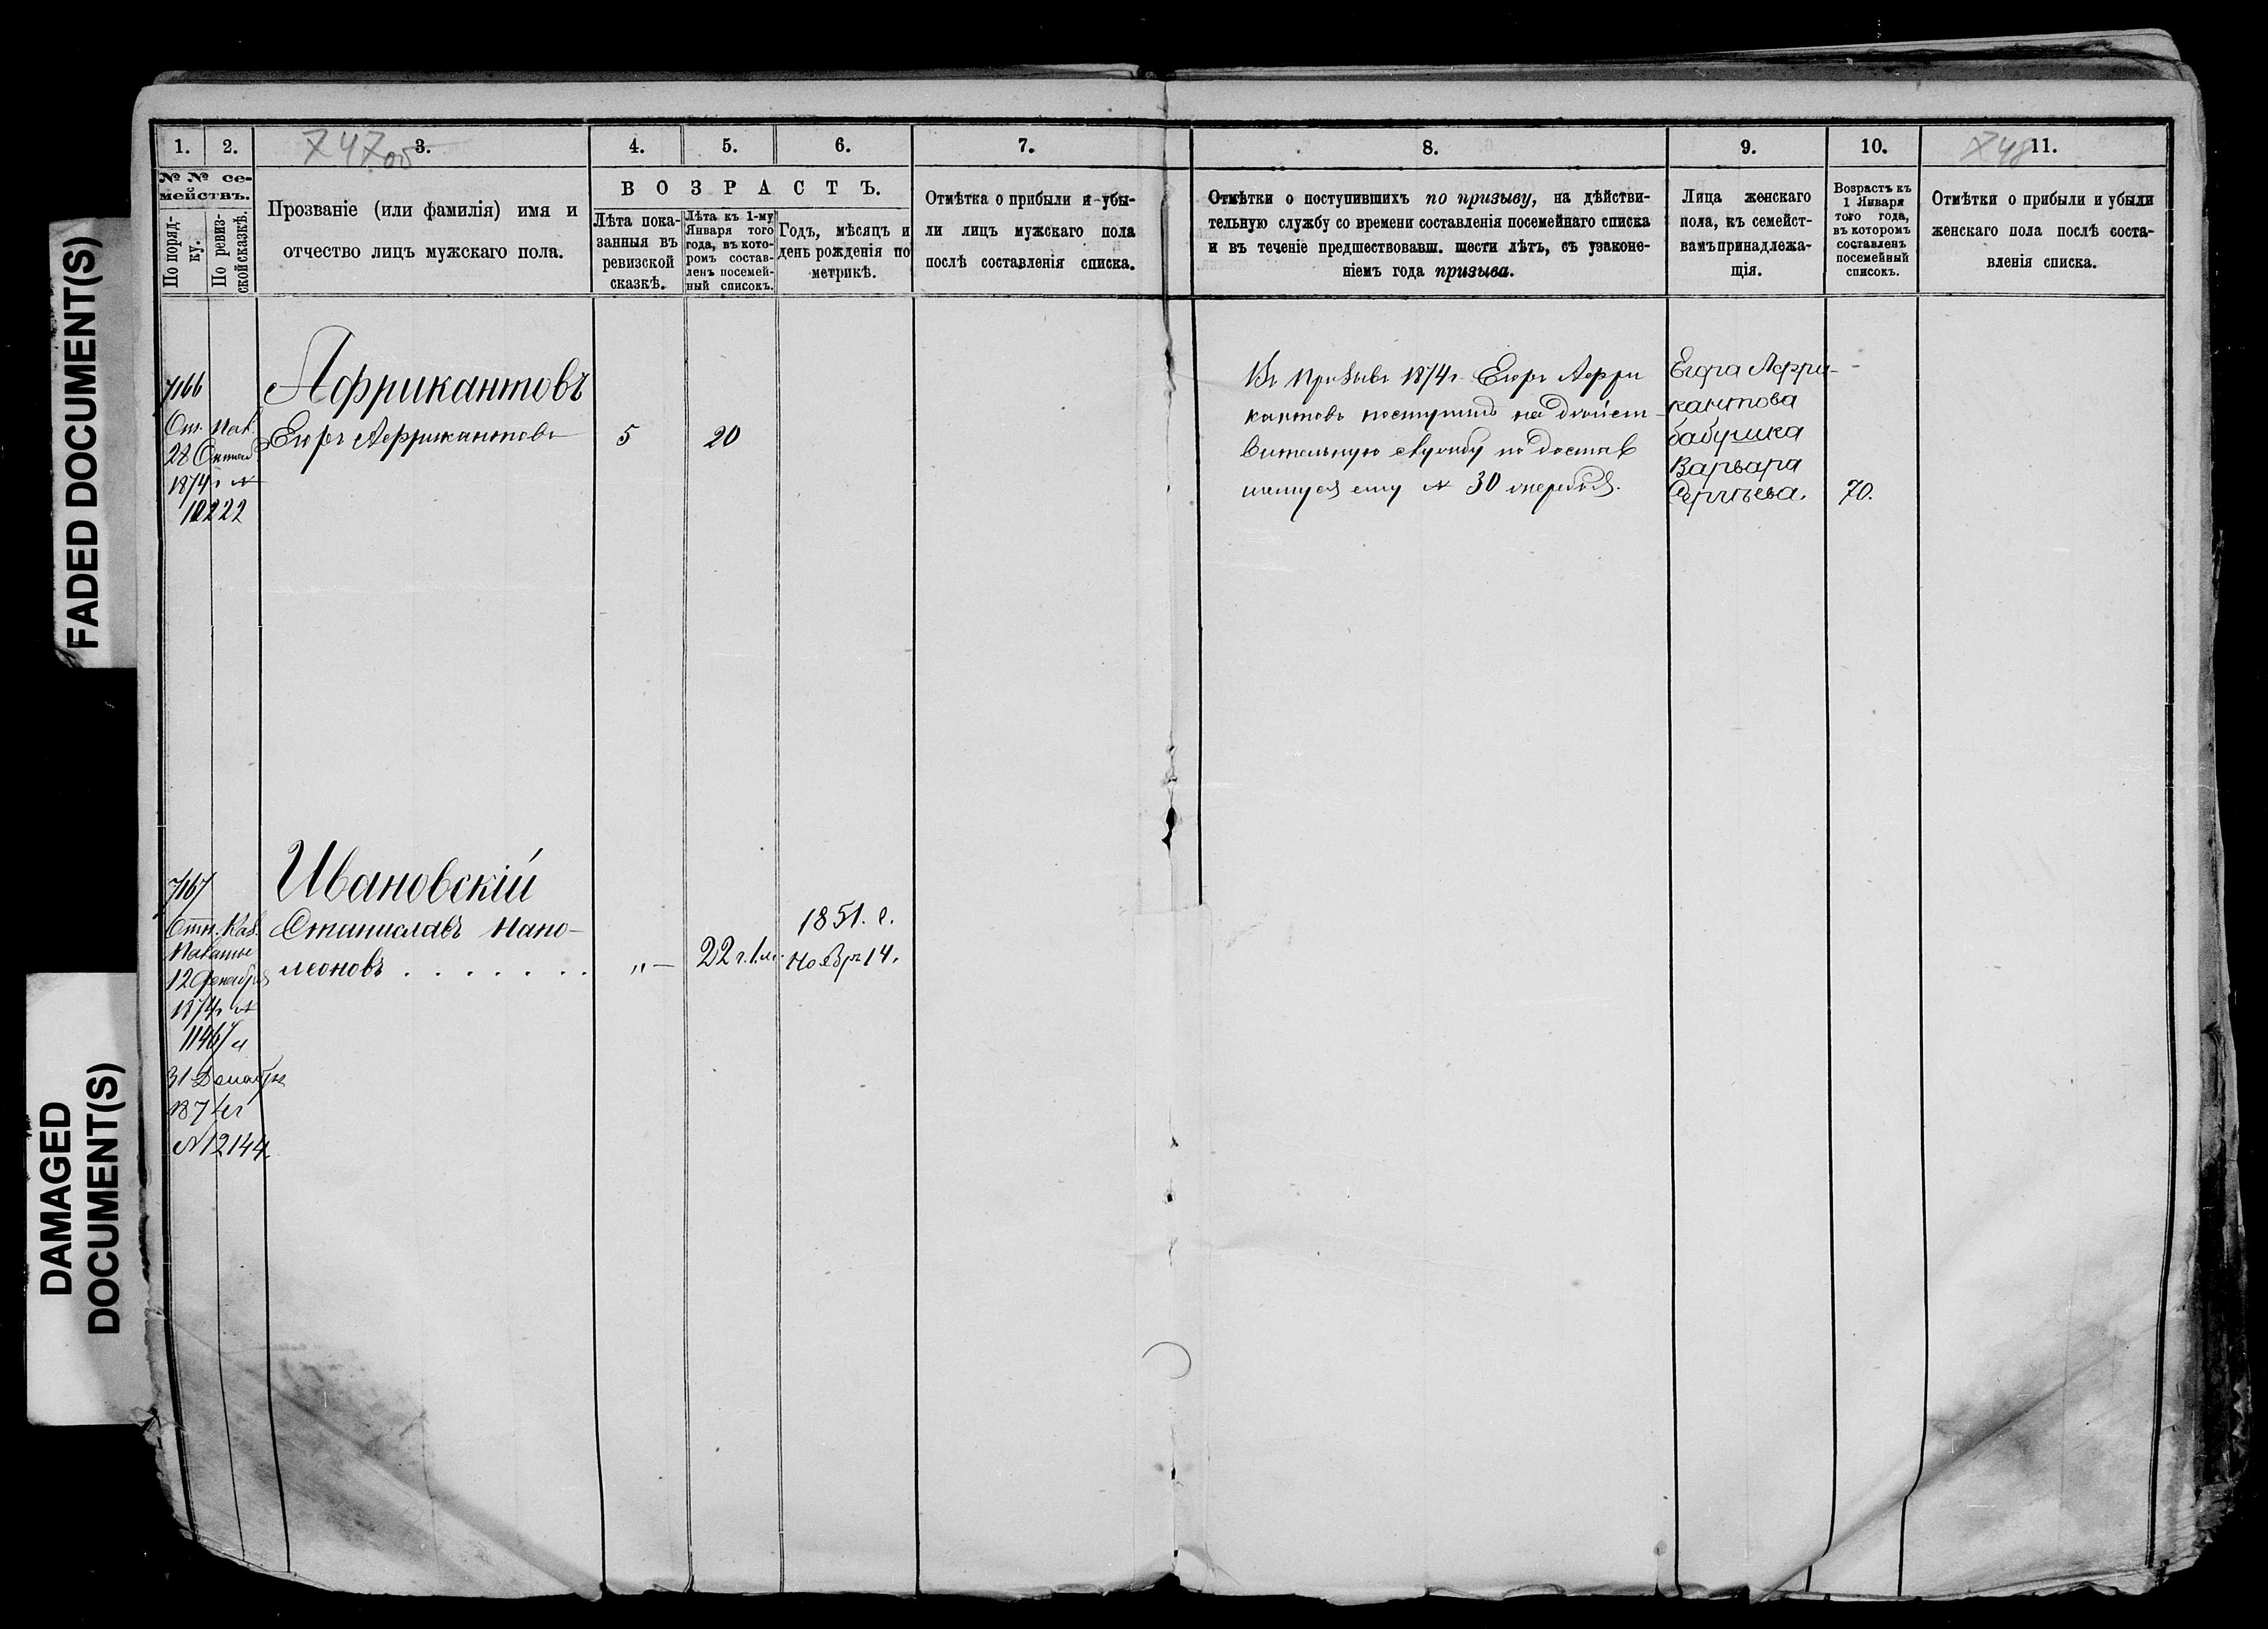 FADED DOCUMENT(S)
DAMAGED
DOCUMENT(S)
1.
2.
3.
4.
5.
6.
7.
8.
9.
10.
11.
747об
748
№ № се-
мействъ.
По поряд-
ку.
По ревиз-
ской сказкѣ.
Прозваніе (или фамилія) имя и
отчество лицъ мужскаго пола.
ВОЗРАСТЪ.
Лѣта пока-
занныя въ
ревизской
сказкѣ.
Лѣта къ 1-му
Января того
года, въ кото-
ромъ состав-
ленъ посемей-
ный списокъ.
Годъ, мѣсяцъ и
день рожденія по
метрикѣ.
Отмѣтка о прибыли и убы-
ли лицъ мужскаго пола
послѣ составленія списка.
Отмѣтки о поступившихъ по призыву, на дѣйстви-
тельную службу со времени составленія посемейнаго списка
и въ теченіе предшествовавш. шести лѣтъ, съ узаконе-
ніемъ года призыва.
Лица женскаго
пола, къ семейст-
вамъ принадлежа-
щія.
Возрастъ къ
1 Января
того года,
въ которомъ
составленъ
посемейный
списокъ.
Отмѣтки о прибыли и убыли
женскаго пола послѣ соста-
вленія списка.
7166
28
1874 г №
10222
Африкантовъ
Егоръ Африкантовъ
5
20
Въ призывъ 1874 г. Егоръ Афри
кантовъ поступилъ на дѣйст-
вительную службу по достав
шемуся ему № 30 жеребью.
Егора Афри-
кантова
бабушка
Варвара
Сергѣева.
70.
7167
Отн. Каз.
Палаты
12 Декабря
1874 г №
11467 и
31 Декабря
1874 г
№ 12144
Ивановскій
Станиславъ Напо-
леоновъ . . . . . . .
„ —
22 г. 1 м.
1851. г.
Ноябрь 14.